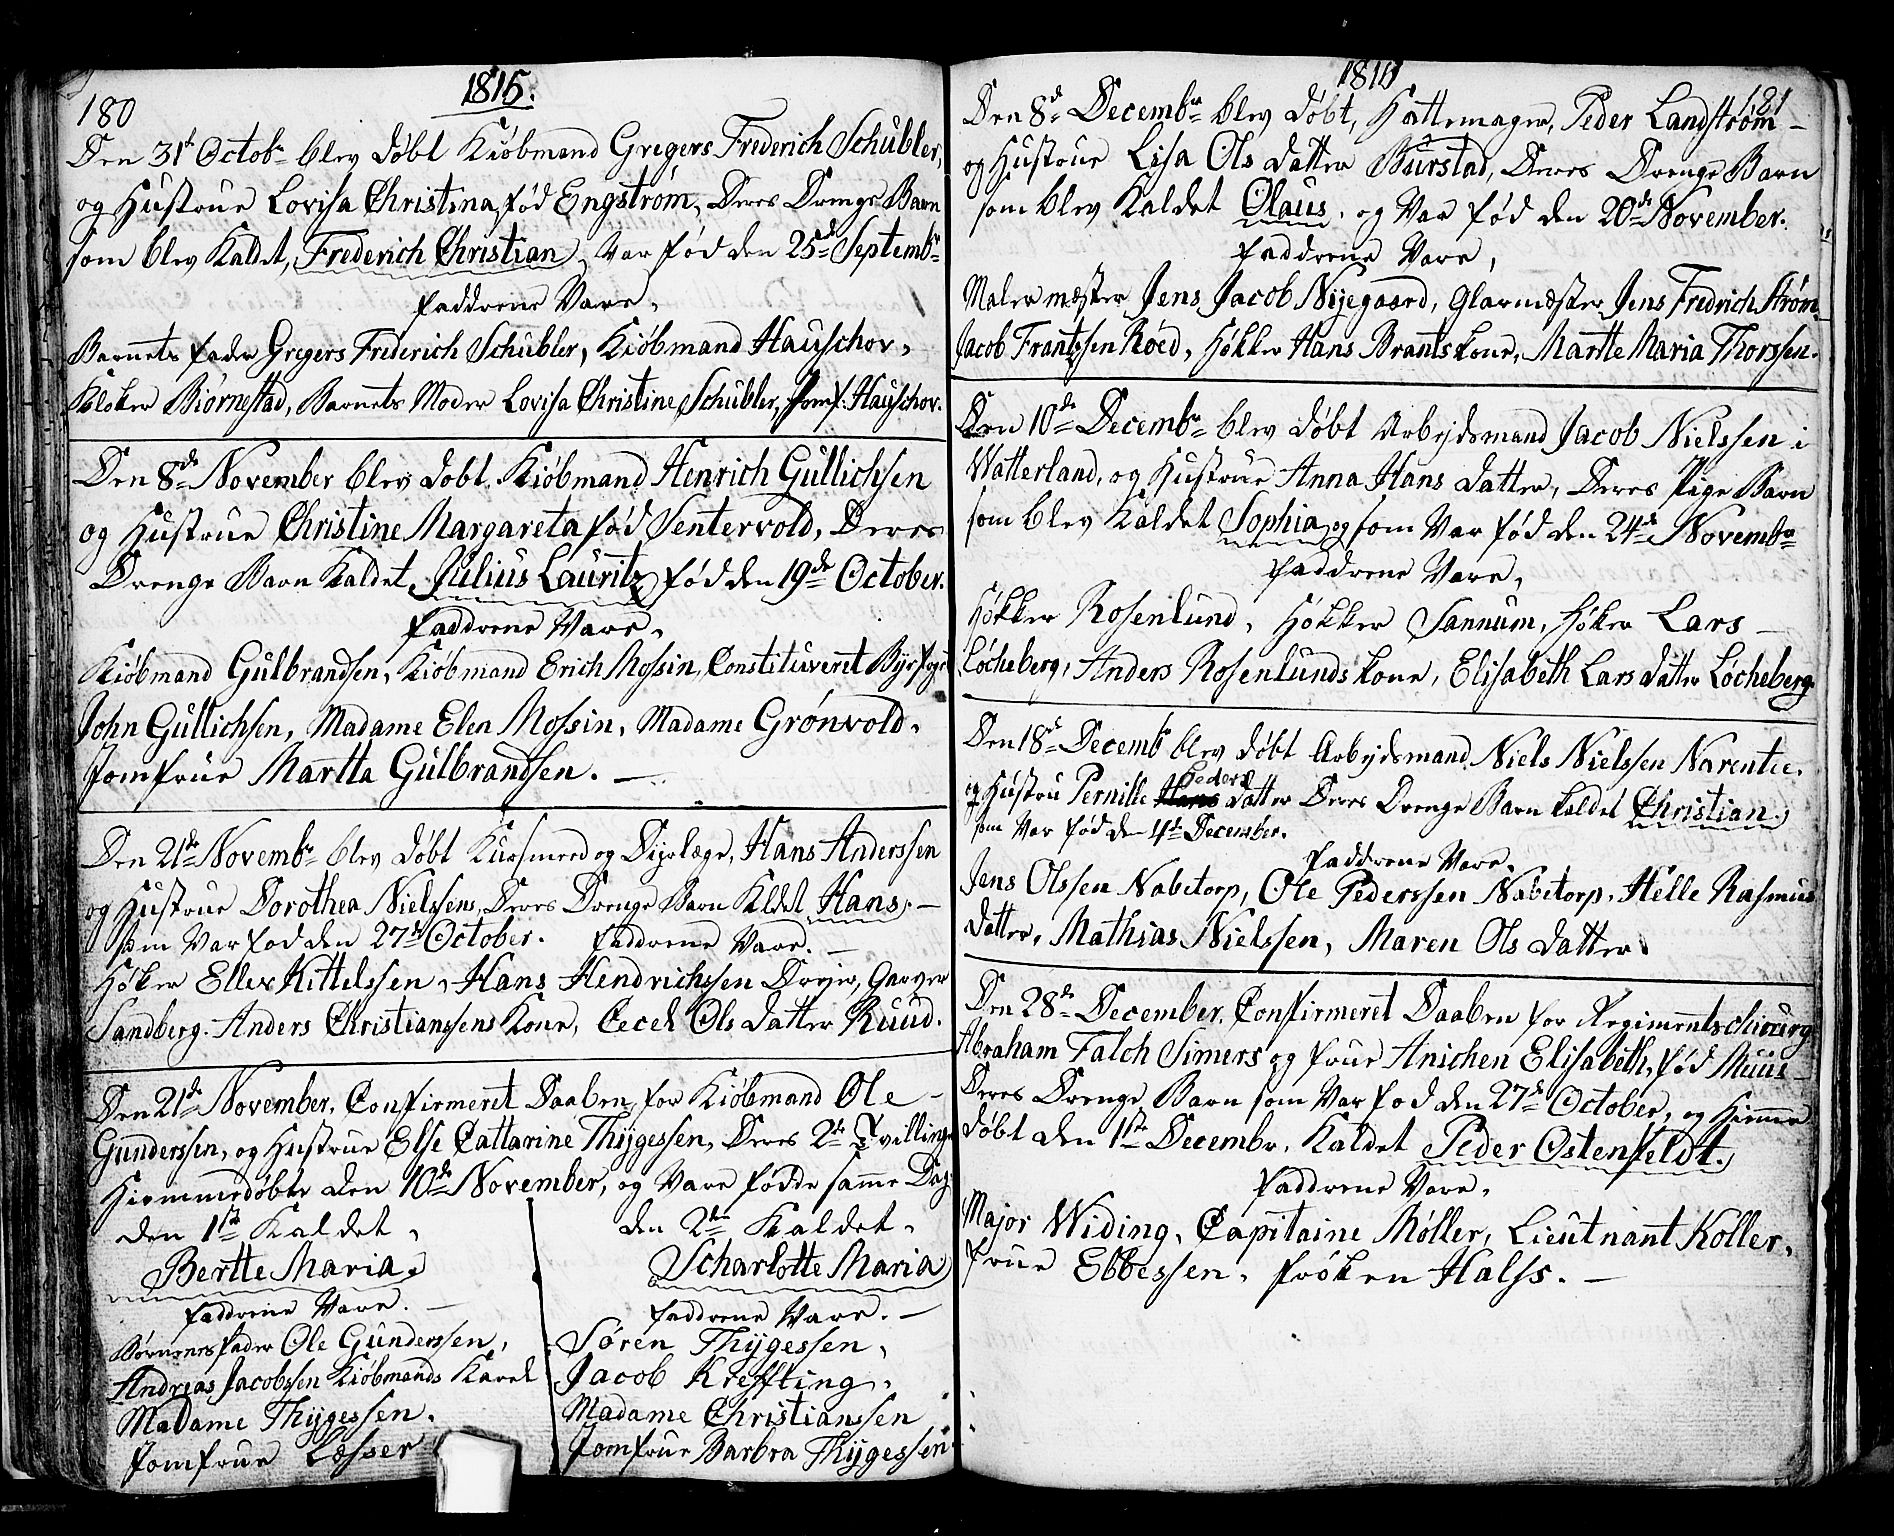 180
1815.
Den 31t Octobr blev døbt Kiøbmand Gregers Frederich Schübler,
og Hustrue Lovisa Christina, fød Engstrøm, Deres Drenge Barn
som blev Kaldet, Frederich Christian, Var fød den 25de Septembr
Faddrene Vare,
Barnets Fader Gregers Frederich Schübler, Kiøbmand Hauschov,
Kloker Biørnestad, Barnets Moder Lovisa Christine Schübler, Jomf. Hauschov.
Den 8de November blev døbt Kiøbmand Henrich Gullichsen
og Hustrue Christine Margareta fød Sentervold, Deres
Drenge Barn Kaldet, Julius Lauritz, fød den 19de October.
Faddrene Vare,
Kiøbmand Gulbrandsen, Kiøbmand Erich Mossin, Constitueret Byefoged
John Gullichsen, Madame Elen Mossin, Madame Grønvold,
Jomfrue Martta Gulbrandsen.
Den 21de Novembr blev døbt Kursmed og Dyrlæge, Hans Anderssen
og Hustrue Dorothea Nielssens, Deres Drenge Barn Kldet Hans,
som Var fød den 27de October. Faddrene Vare.
Høker Ellev Kittelssen, Hans Hendrichssen Dreyer, Garver
Sandberg, Anders Christianssens Kone, Cecel Ols datter Ruud.
Den 21de November, Confirmeret Daaben for Kiøbmand Ole
Gunderssen, og Hustrue Else Cattarine Thygessen, Deres 2de Tvillinge
Hiemmedøbte den 10de November, og Vare fødde samme Dag,
den 1ste Kaldet,
Bertte Maria,
Faddrene Vare.
Børnenes Fader Ole Gunderssen,
Andreas Jacobssen Kiøbmands Karel
Madame Thygessen.
Jomfrue Læsser
den 2de Kaldet,
Scharlotte Maria
Faddrene Vare.
Søren Thygessen,
Jacob Kreffting,
Madame Christianssen
Jomfrue Barbra Thygessen
181
Den 8de Decembr blev døbt, Hattemager, Peder Landstrøm
og Hustrue Lisa Ols datter Burstad, Deres Drenge Barn
som blev Kaldet Olaus, og Var fød den 20de November.
Faddrene Vare,
Maler mæster Jens Jacob Nyegaard, Glarmæster Jens Fredrich Strøm,
Jacob Frantzsen Røed, Høkker Hans Brants kone, Martte Maria Thorssen.
Den 10de Decembr blev døbt Arbejdsmand Jacob Nielssen i
Watterland, og Hustrue Anna Hans datter, Deres Pige Barn
som blev Kaldet Sophia, og som Var fød den 24de Novembr
Faddrene Vare,
Høkker Rosenlund, Høkker Sannum, Høker Lars
Løcheberg, Anders Rosenlunds kone, Elisabeth Lars datter Løcheberg
Den 18de Decembr blev døbt Arbejdsmand Niels Nielssen Narentee.
Peders
og Hustru Pernille Hans datter Deres Drenge Barn kaldet Christian,
som Var fød den 4de December.
Faddrene Vare,
Jens Olssen Nabetorp, Ole Pederssen Nabetorp, Helle Rasmus
datter, Mathias Nielssen, Maren Ols datter.
Den 28de December, Confirmeret Daaben for Regimentschirurg
Abraham Falch Simers og Frue Anichen Elisabeth, fød Muus
Deres Drenge Barn som Var fød den 27de October, og Hiemme
døbt den 1ste Decembr, Kaldet Peder Ostenfeldt.
Faddrene Vare,
Major Widing, Capitaine Møller, Lieutnant Koller,
Frue Ebbessen, Frøken Halss.